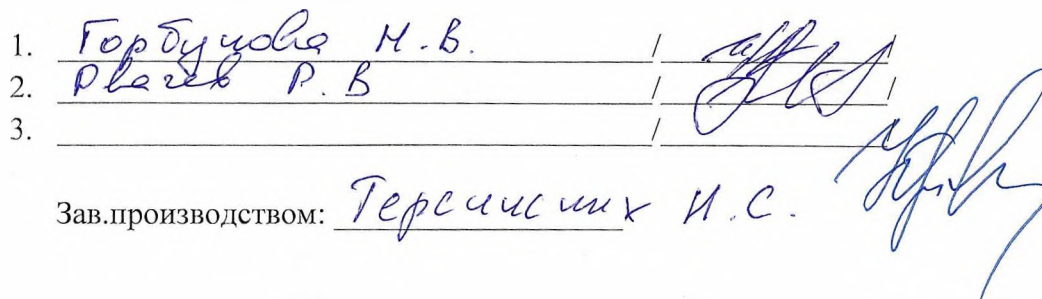 1. Горбунова Н.В. / /
2. Рвачев Р.В / /
3. /
Зав.производством: Терсинских Н.С.